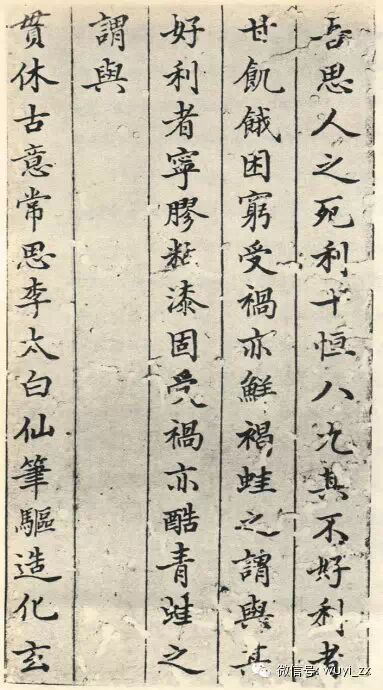 思人之死利十恒八九其不好利者
甘飢餓困窮受禍亦鮮褐蛙之謂與其
好利者寧膠粘漆固受禍亦酷青蛙之
謂與
貫休古意常思李太白仙筆驅造化玄
微信号: wuyi_zx